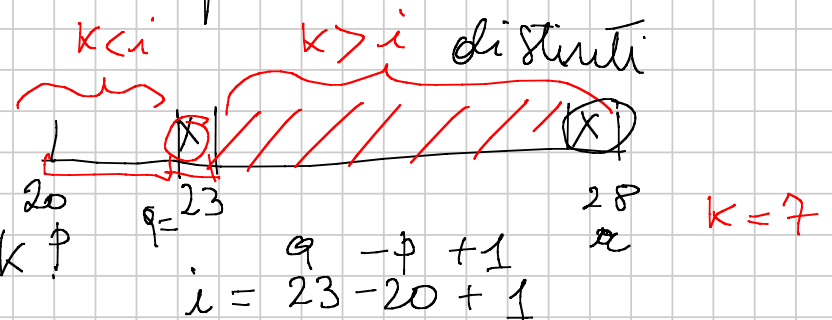 k<i k>i distinti
X X
20 q=23 28 k=7
k p r
q -p +1
i = 23-20+1